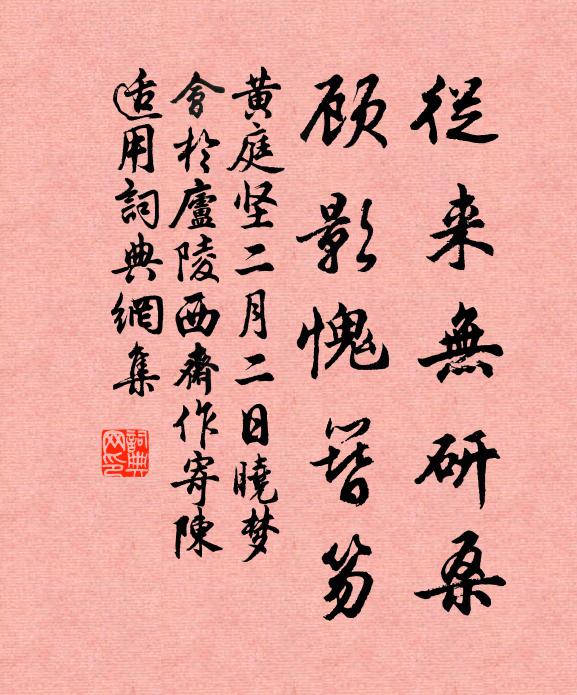 從来無研桑
顧影愧簪笏
黄庭坚二月二日曉梦
會於廬陵西齋作寄陳
适用詞典網集
詞典网印